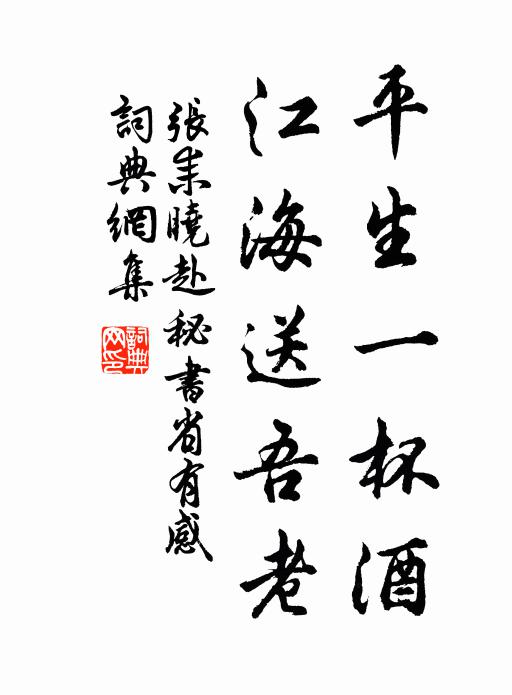 平生一杯酒
江海送吾老
張耒曉赴秘書省有感
詞典網集
詞典
网印